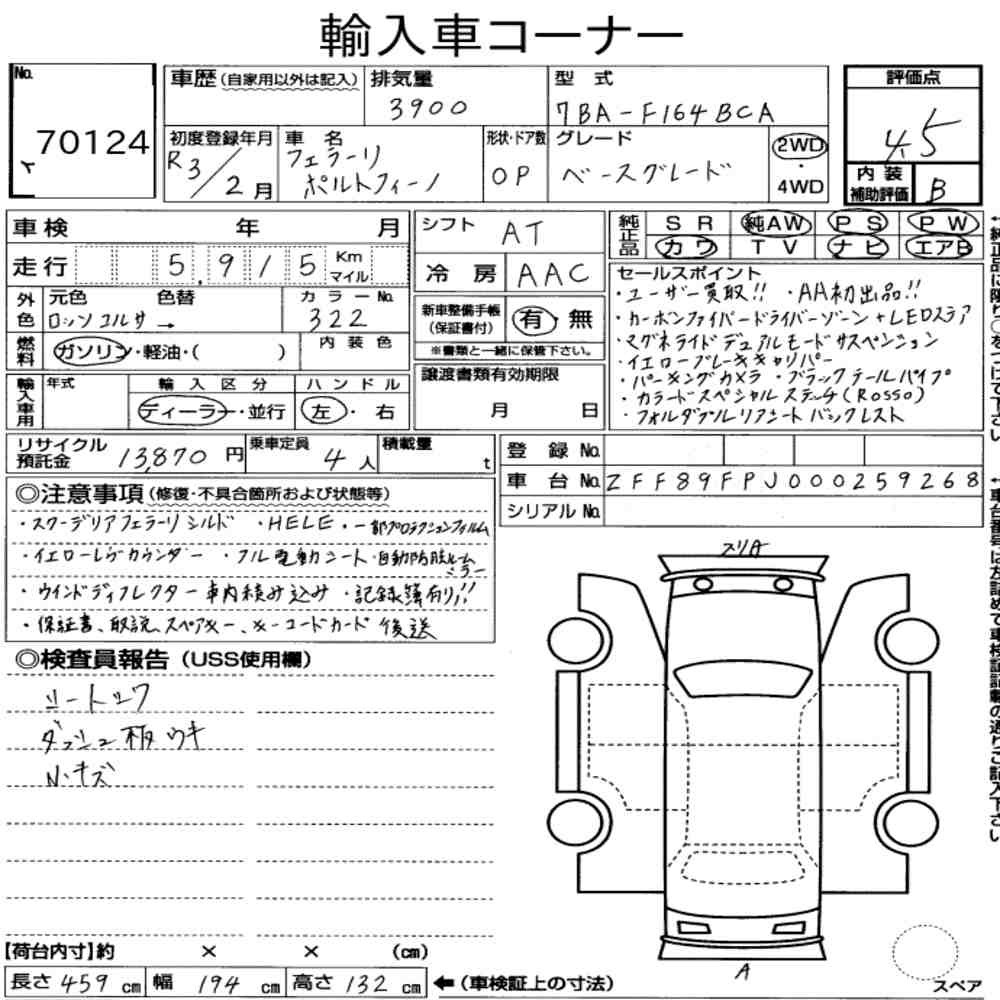 輸入車コーナー
No.
70124
車歴 (自家用以外は記入)
排気量
3900
型式
7BA-F164BCA
評価点
4.5
内装補助評価 B
初度登録年月
R3/2月
車名
フェラーリ
ポルトフィーノ
形状・ドア数
OP
グレード
ベースグレード
2WD
・
4WD
車検 年 月
走行 5,915 Km マイル
外色 元色 色替 カラーNo.
ロッソコルサ → 322
燃料 ガソリン・軽油・( ) 内装色
輸入車用 年式 輸入区分 ハンドル
ディーラー・並行 左・右
シフト AT
冷房 AAC
新車整備手帳
(保証書付) 有・無
※書類と一緒に保管下さい。
譲渡書類有効期限
月 日
純正品 SR 純AW PS PW
カワ TV ナビ エアB
セールスポイント
・ユーザー買取!! ・AA初出品!!
・カーボンファイバードライバーゾーン+LEDステア
・マグネライドデュアルモードサスペンション
・イエローブレーキキャリパー
・パーキングカメラ ・ブラックテールパイプ
・カラードスペシャルステッチ(ROSSO)
・フォルダブルリアシートバックレスト
←純正品に限り○をつけて下さい
リサイクル預託金 13,870円
乗車定員 4人
積載量 t
登録No.
車台No. ZFF89FPJ000259268
シリアルNo.
←車台番号は左詰めで車検証記載の通りご記入下さい
◎注意事項 (修復・不具合箇所および状態等)
・スクーデリアフェラーリシルド ・HELE ・一部プロテクションフィルム
・イエローレヴカウンター ・フル電動シート ・自動防眩ルームミラー
・ウインドディフレクター車内積み込み ・記録簿有り!!
・保証書、取説、スペアキー、キーコードカード後送
◎検査員報告 (USS使用欄)
シートシワ
ダッシュ板ウキ
小キズ
スリA
A
スペア
【荷台内寸】約 × × (cm)
長さ 459 cm 幅 194 cm 高さ 132 cm ←(車検証上の寸法)